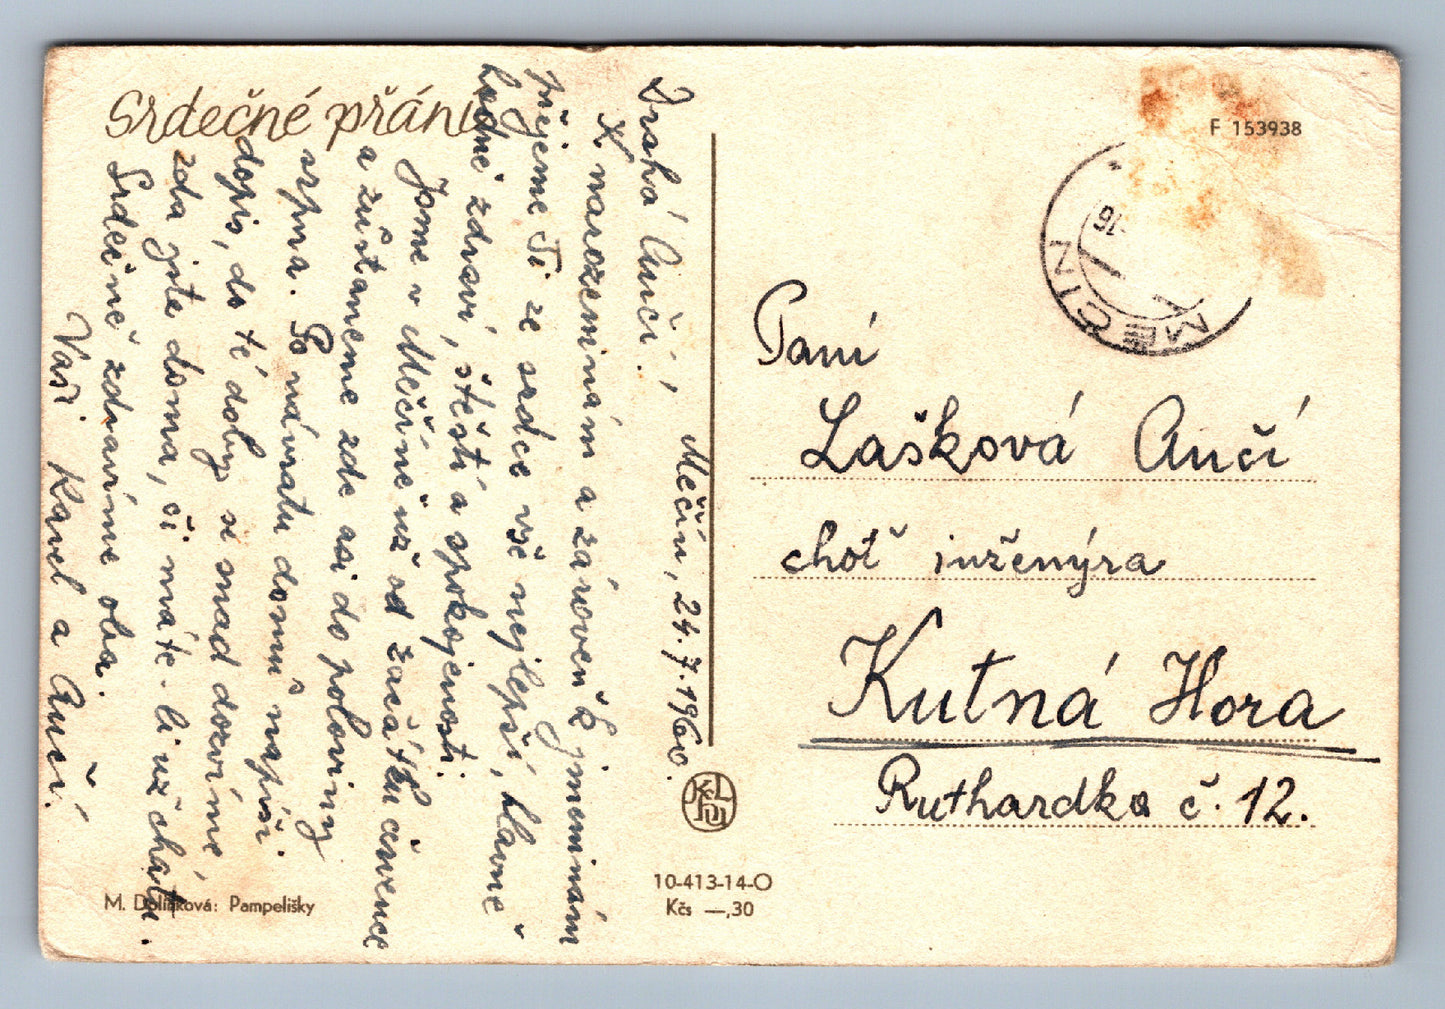 Srdečné přání
DraháAnčí!,
Měčín, 24.7.1960.
K narozeninám a zároveň k jmeninám
přejeme Ti ze srdce vše nejlepší, hlavně
hodně zdraví, štěstí a spokojenosti.
Jsme v Měčíně už od začátku července
a zůstaneme zde asi do poloviny
srpna. Po návratu domů napíši
dopis, do té doby se snad dozvíme,
zda jste doma, či máte-li už chatu.
Srdečně zdravíme oba.
Vaši Karel a Ančí.
M. Dolínková: Pampelišky
10-413-14-O
Kčs —,30
F 153938
MĚČÍN
Paní
Lašková Ančí
choť inženýra
Kutná Hora
Ruthardka č. 12.